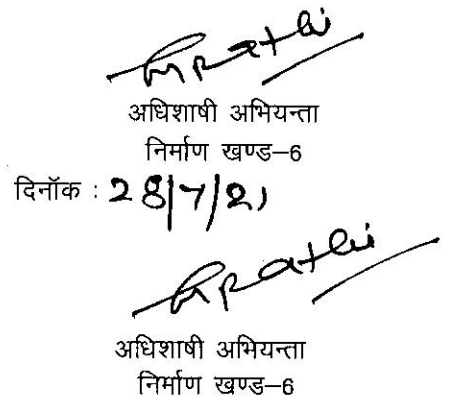 अधिशाषी अभियन्ता
निर्माण खण्ड–6
दिनॉक : 28/7/21
अधिशाषी अभियन्ता
निर्माण खण्ड–6